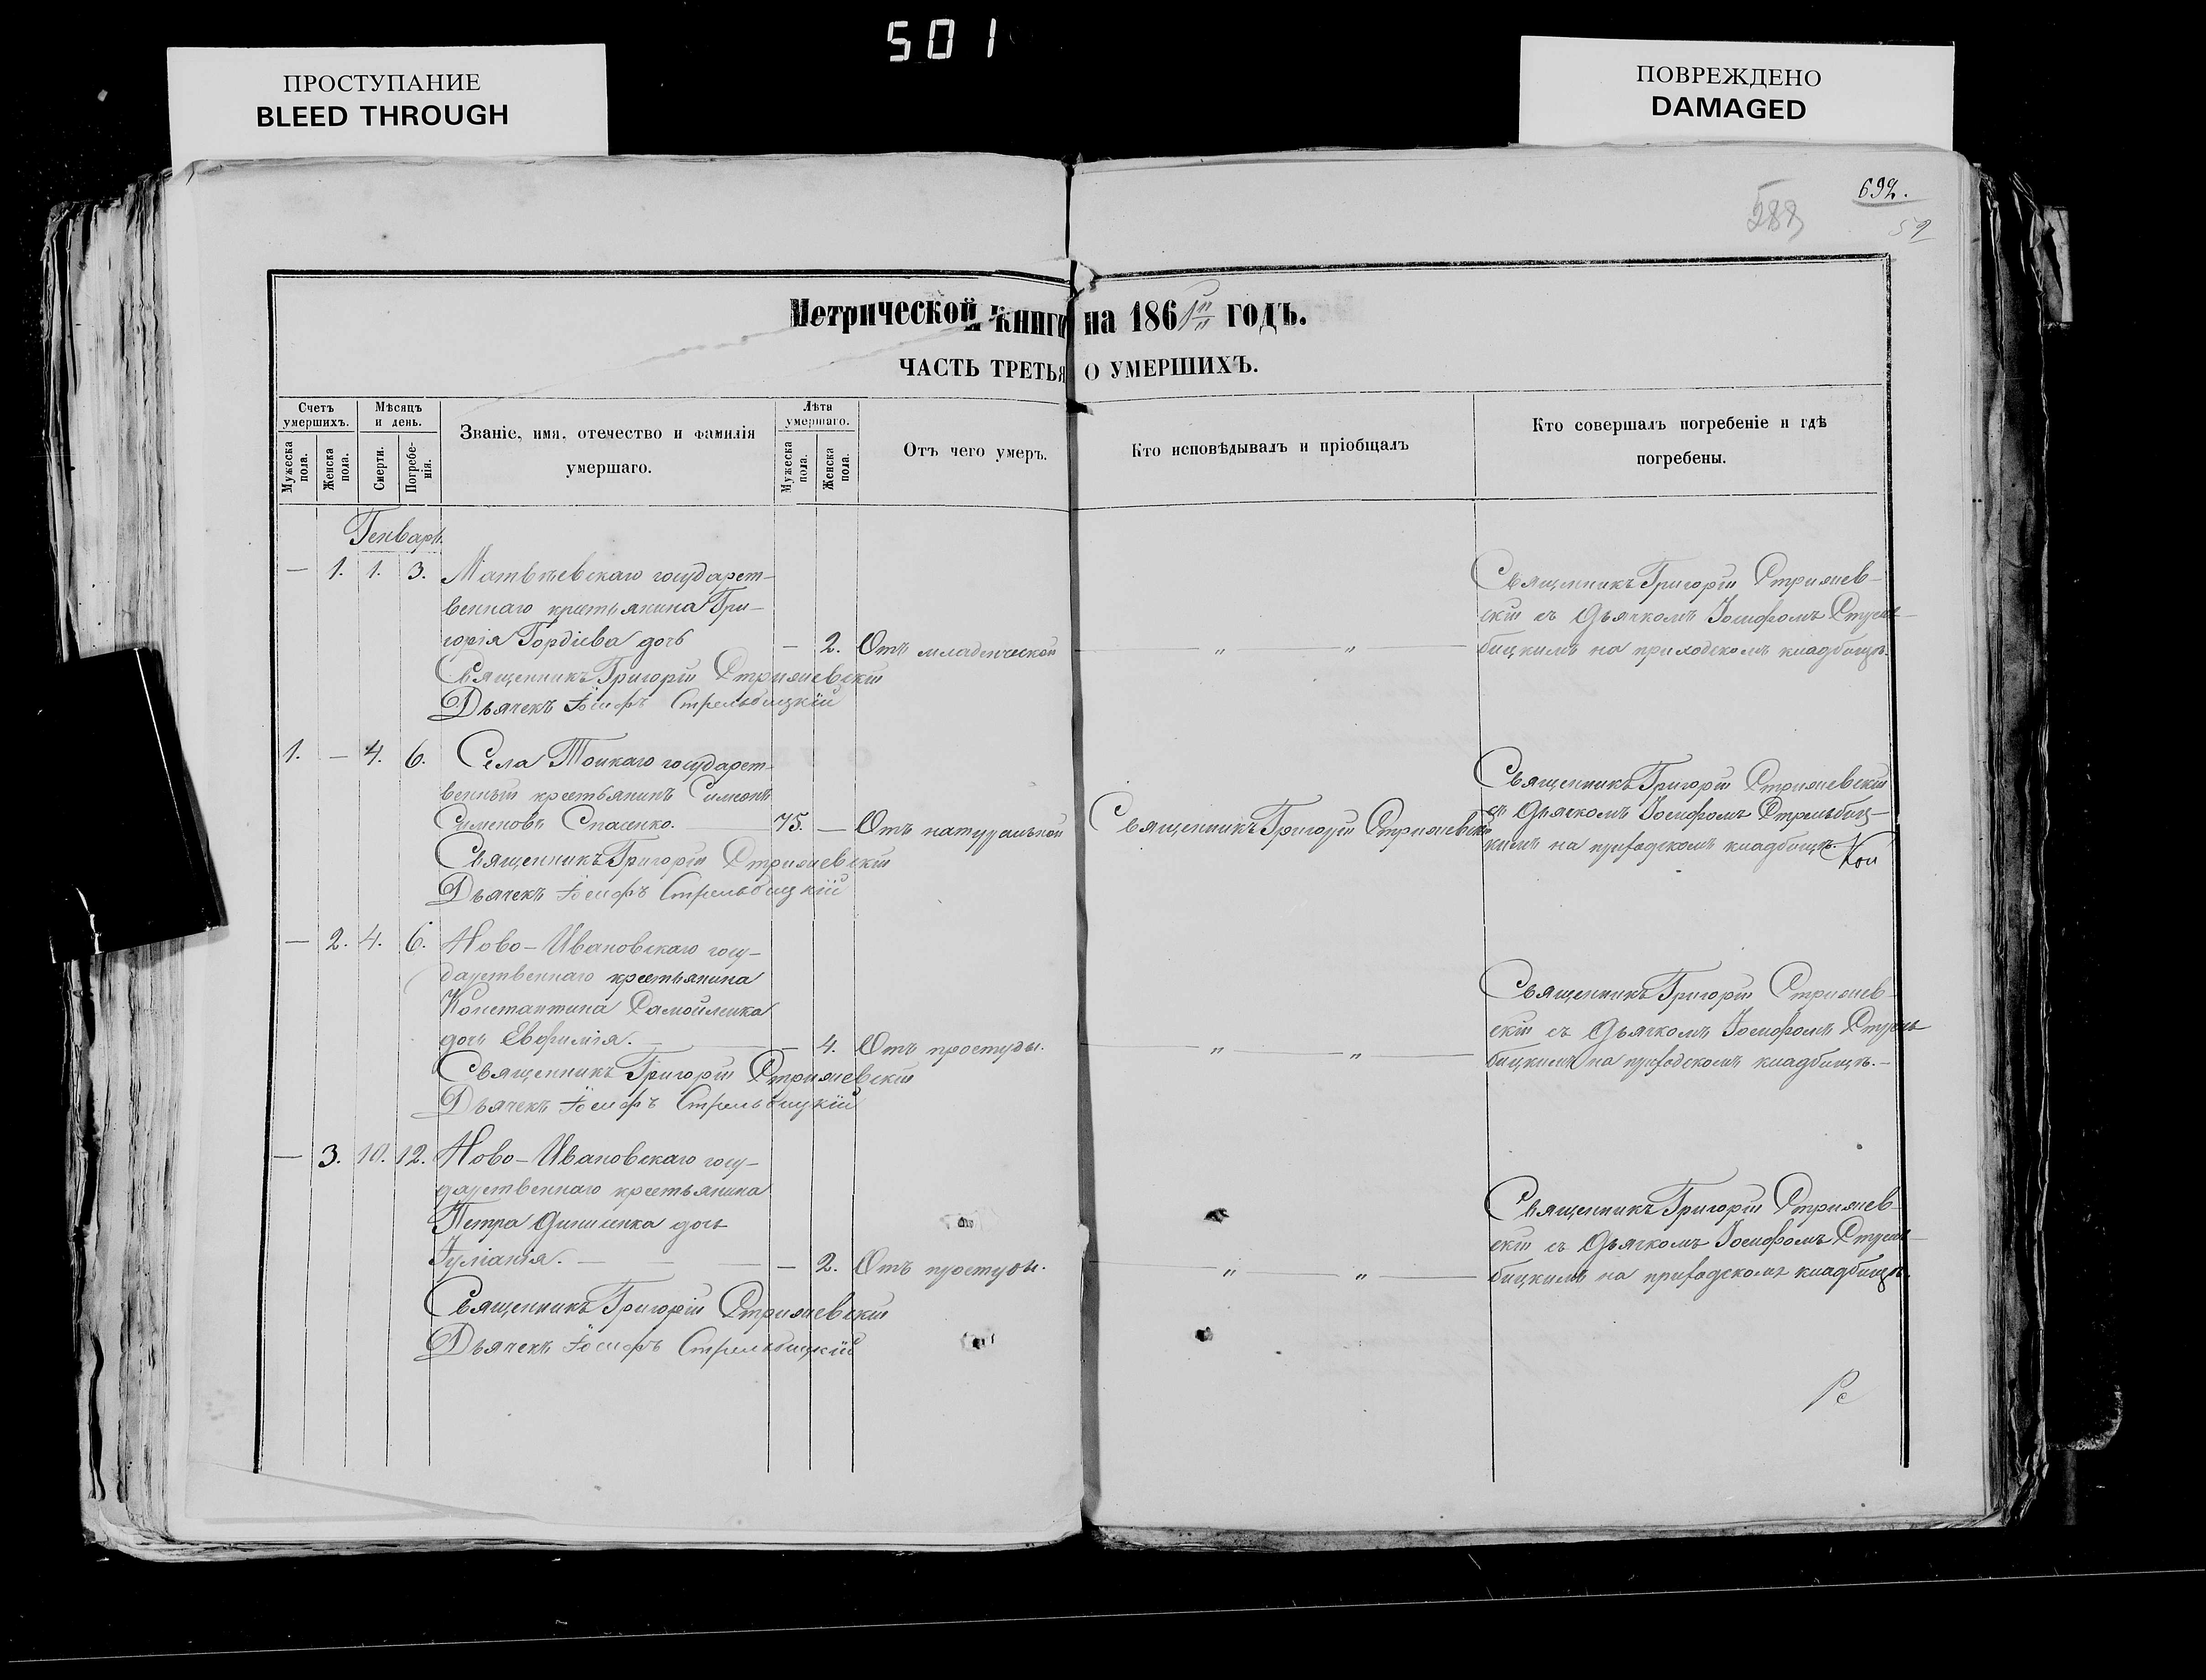 501
ПРОСТУПАНИЕ
BLEED THROUGH
ПОВРЕЖДЕНО
DAMAGED
692.
288
52
Метрической книги на 1861 годъ.
ЧАСТЬ ТРЕТЬЯ О УМЕРШИХЪ.
Счетъ умершихъ.
Мужеска пола.
Женска пола.
Мѣсяцъ и день.
Смерти.
Погребенія.
Званіе, имя, отечество и фамилія
умершаго.
Лѣта умершаго.
Мужеска пола.
Женска пола.
Отъ чего умеръ.
Кто исповѣдывалъ и пріобщалъ
Кто совершалъ погребеніе и гдѣ
погребены.
Генварь.
— 1. 1. 3. Матвѣевскаго государст-
веннаго крестьянина Гри-
горія Гордіева дочь — 2. Отъ младенческой — „ — „ —
Священникъ Григорій
Дьячекъ Іосифъ Стрельбицкій
Священникъ Григорій
скій съ Дьячкомъ Іосифомъ
бицкимъ на приходскомъ кладбищѣ.
1. — 4. 6. Села государст-
венный крестьянинъ Симеонъ
Сименовъ Спасенко. — 75. — Отъ натуральной Священникъ Григорій
Священникъ Григорій
Дьячекъ Іосифъ Стрельбицкій
Священникъ Григорій
съ Дьячкомъ Іосифомъ Стрельбиц-
кимъ на приходскомъ кладбищѣ.
Кои
— 2. 4. 6. Ново-Ивановскаго госу-
дарственнаго крестьянина
Константина Самойленка
дочь Евфимія. — 4. Отъ простуды. — „ — „ —
Священникъ Григорій
Дьячекъ Іосифъ Стрельбицкій
Священникъ Григорій
скій съ Дьячкомъ Іосифомъ Стрель
бицкимъ на приходскомъ кладбищѣ. —
— 3. 10. 12. Ново-Ивановскаго госу-
дарственнаго крестьянина
Петра дочь
Іуліанія. — — — — 2. Отъ простуды. — „ — „ —
Священникъ Григорій
Дьячекъ Іосифъ Стрельбицкій
Священникъ Григорій
скій съ Дьячкомъ Іосифомъ Стрель-
бицкимъ на приходскомъ кладбищѣ.
Рс